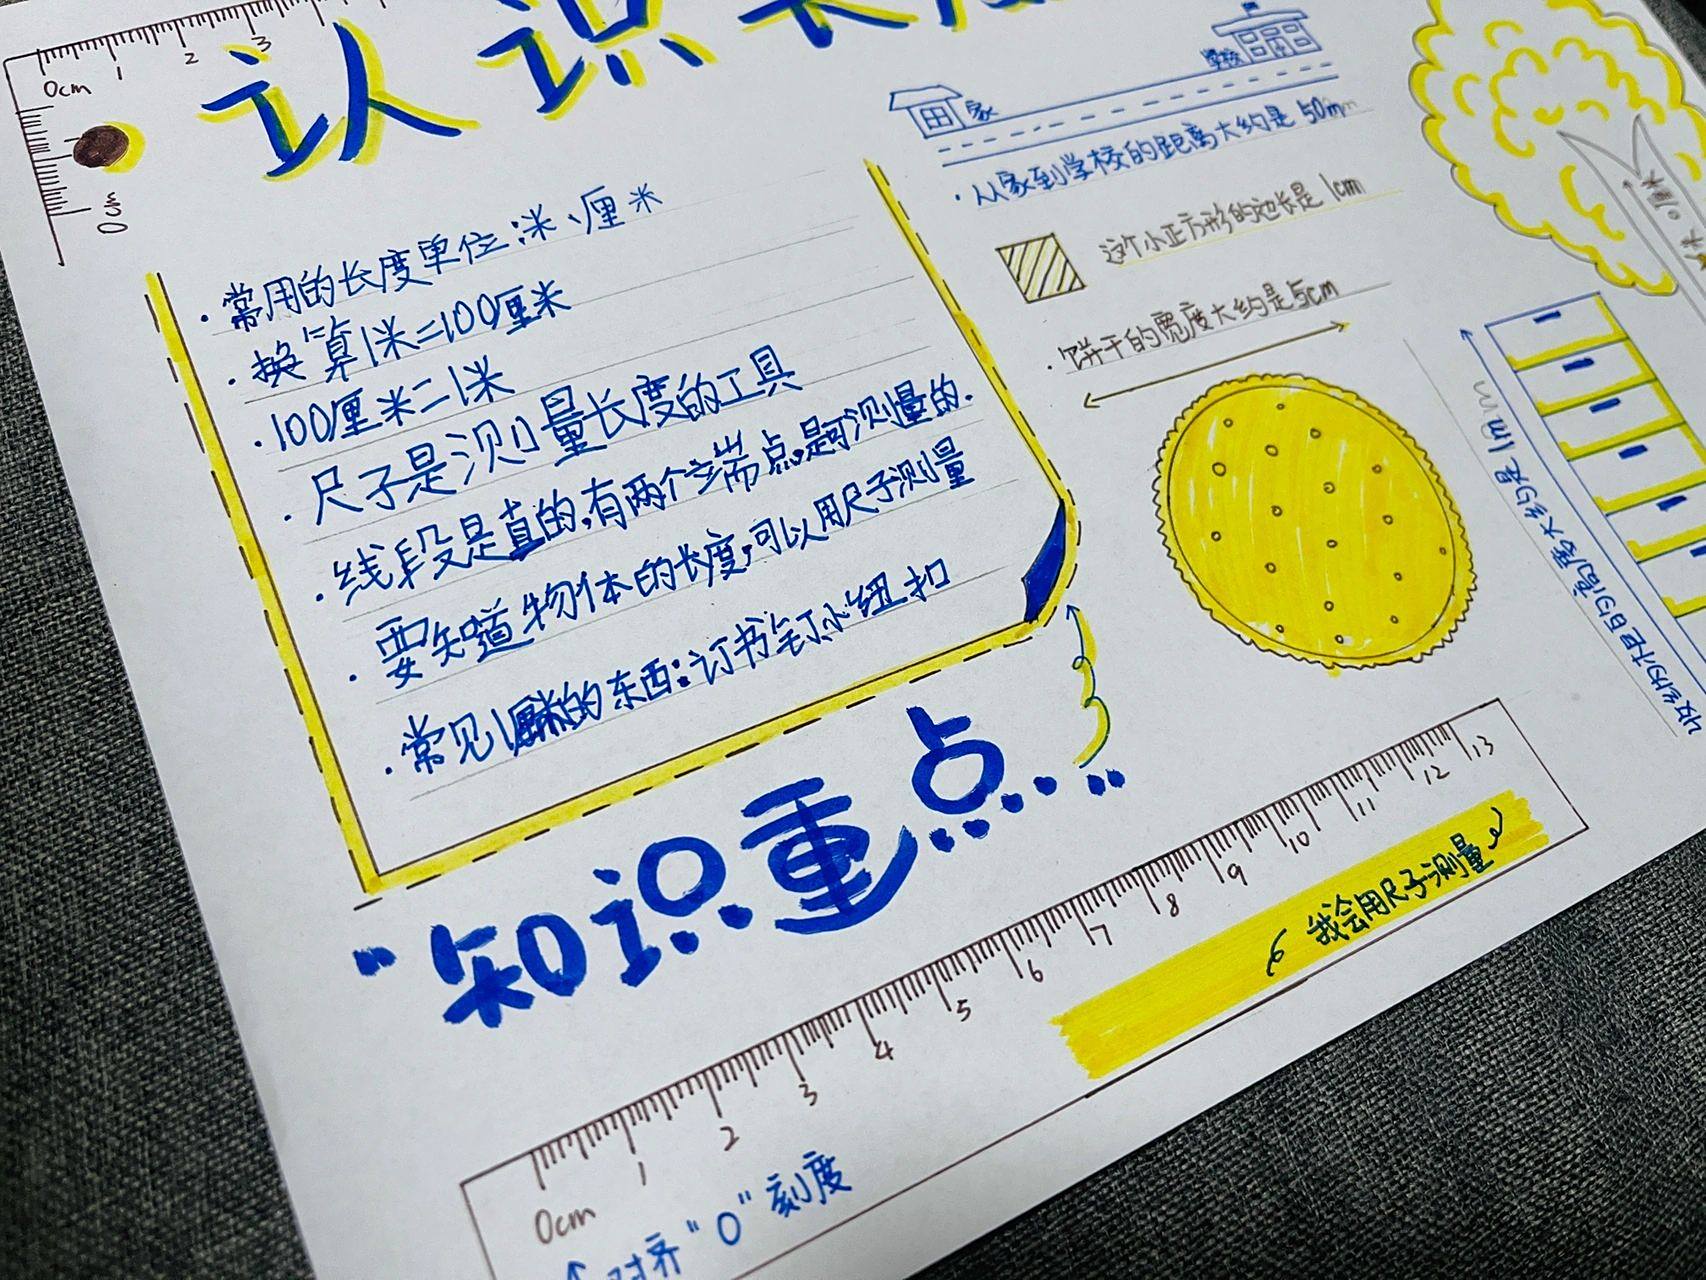 认识长度
0cm 1 2 3
0cm
·常用的长度单位:米、厘米
·换算1米=100厘米
·100厘米=1米
·尺子是测量长度的工具
·线段是直的,有两个端点,是可测量的.
·要知道物体的长度,可以用尺子测量
·常见1厘米的东西:订书钉、小纽扣
"知识重点……"
家
学校
·从家到学校的距离大约是50m
这个小正方形的边长是1cm
·饼干的宽度大约是5cm
收纳柜的高度大约是1m
0cm 1 2 3 4 5 6 7 8 9 10 11 12 13
我会用尺子测量
对齐"0"刻度